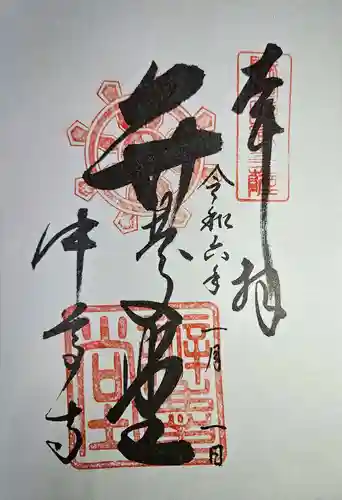 奉拝
令和六年
一月
一日
弁慶堂
中尊寺